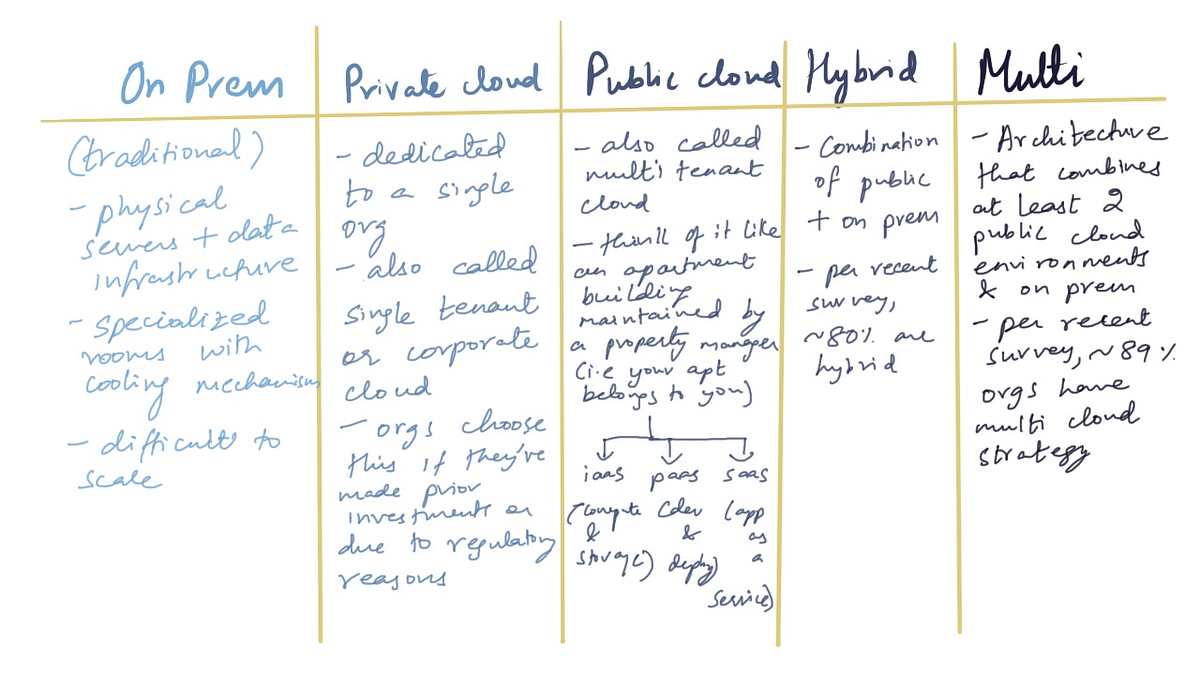 On Prem
(traditional)
- physical
servers + data
infrastructure
- specialized
rooms with
cooling mechanism
- difficult to
scale
Private cloud
- dedicated
to a single
org
- also called
single tenant
or corporate
cloud
- orgs choose
this if they've
made prior
investments or
due to regulatory
reasons
Public cloud
- also called
multi tenant
cloud
- think of it like
an apartment
building
maintained by
a property manager
(i.e your apt
belongs to you)
iaas paas saas
(compute (dev (app
& & as
storage) deploy) a
service)
Hybrid
- Combination
of public
+ on prem
- per recent
survey,
~80% are
hybrid
Multi
- Architecture
that combines
at least 2
public cloud
environments
& on prem
- per recent
survey, ~89%
orgs have
multi cloud
strategy